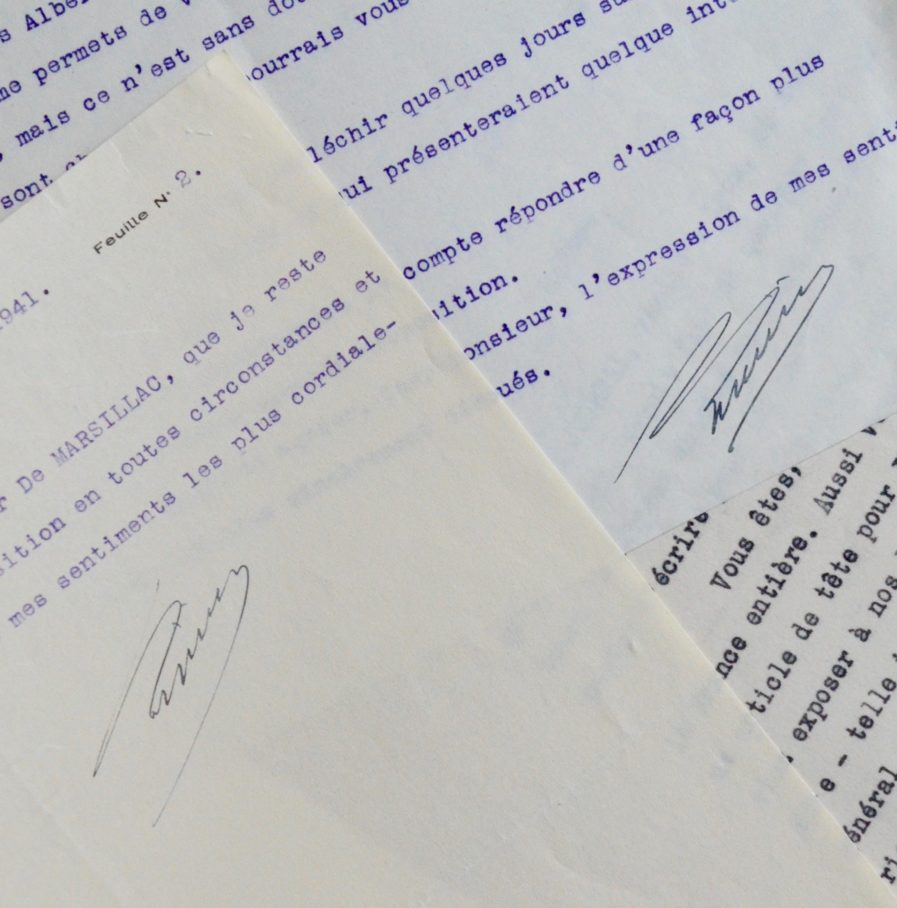 s Albe
me permets de v
, mais ce n'est sans do
ourrais vous
sont
léchir quelques jours su
ui présenteraient quelque inté
compte répondre d'une façon plus
ition.
onsieur, l'expression de mes senti
ués.
Feuille N° 2.
941.
r De MARSILLAC, que je reste
sition en toutes circonstances et
mes sentiments les plus cordiale-
écrire
Vous êtes,
nce entière. Aussi v
ticle de tête pour
exposer à nos
e - telle
énéral